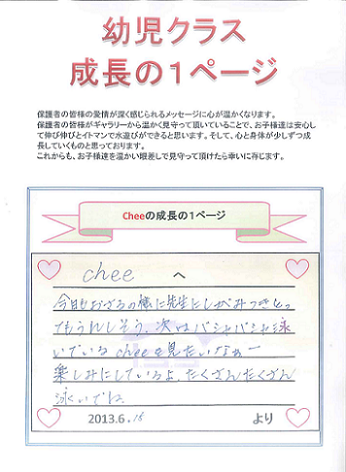 幼児クラス
成長の１ページ
保護者の皆様の愛情が深く感じられるメッセージに心が温かくなります。
保護者の皆様がギャラリーから温かく見守って頂いていることで、お子様達は安心し
て伸び伸びとイトマンで水遊びができると思います。そして、心と身体が少しずつ成
長していくものと思っております。
これからも、お子様達を温かい眼差しで見守って頂けたら幸いに存じます。
Cheeの成長の１ページ
chee へ
今日もおさるの様に先生にしがみつきとっ
てもうれしそう。次はバシャバシャ泳
いでいるcheeを見たいなぁー
楽しみにしているよ。たくさんたくさん
泳いでね
2013.6.16 より